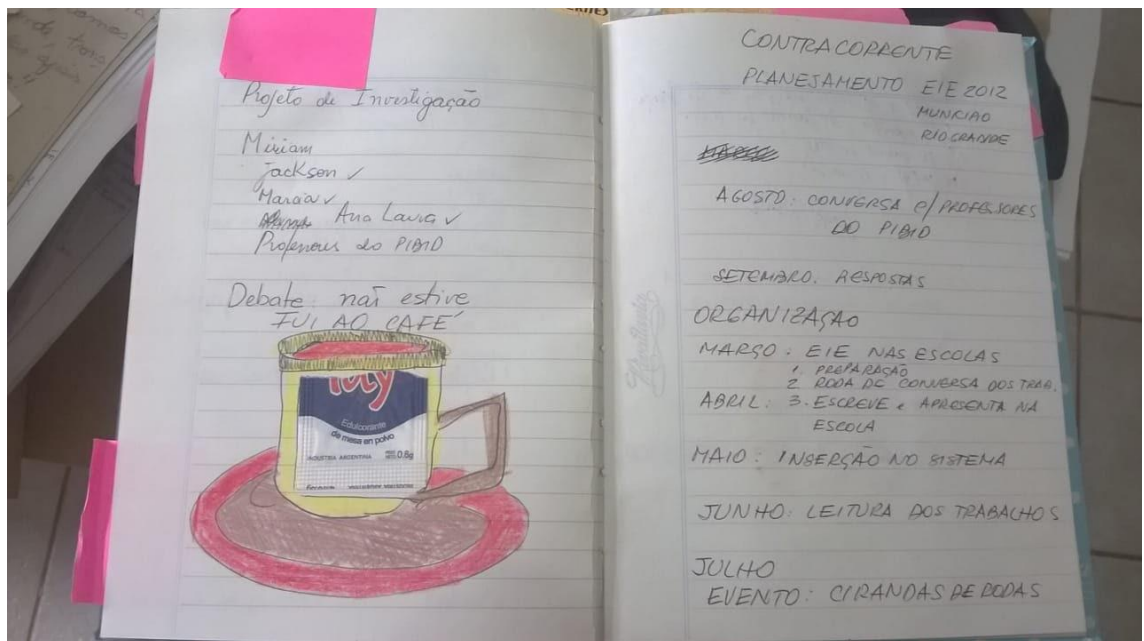 Projeto de Investigação
Miriam
Jackson ✓
Marcia ✓
Ana Laura ✓
Professores do PIBID
Debate: não estive
FUI AO CAFÉ
Edulcorante
de mesa en polvo
INDUSTRIA ARGENTINA PESO NETO 0.8g
CONTRACORRENTE
PLANEJAMENTO EIE 2012
MUNICIAO
RIO GRANDE
AGOSTO: CONVERSA C/ PROFESSORES
DO PIBID
SETEMBRO: RESPOSTAS
ORGANIZAÇÃO
MARÇO: EIE NAS ESCOLAS
1. PREPARAÇÃO
2 RODA DE CONVERSA DOS TRAB.
ABRIL: 3. ESCREVE e APRESENTA NA
ESCOLA
MAIO: INSERÇÃO NO SISTEMA
JUNHO: LEITURA DOS TRABALHOS
JULHO
EVENTO: CIRANDAS DE RODAS